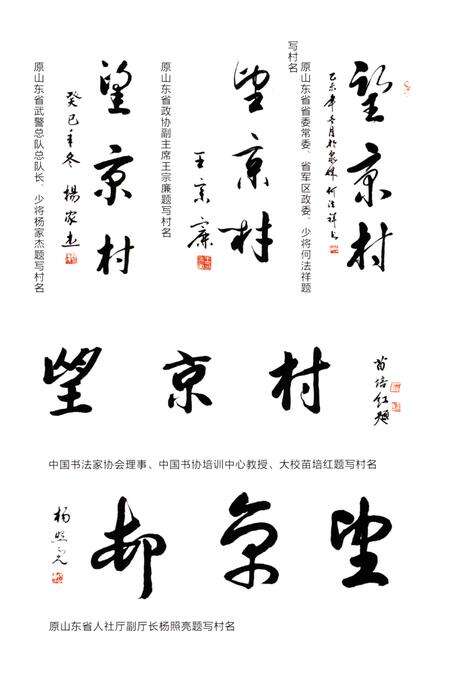 望京村
乙未年冬月於泉城何法祥书
原山东省省委常委、省军区政委、少将何法祥题
写村名
望京村
王宗廉
原山东省政协副主席王宗廉题写村名
望京村
癸巳年冬 楊家杰
原山东省武警总队总队长、少将杨家杰题写村名
望京村
苗培红题
中国书法家协会理事、中国书协培训中心教授、大校苗培红题写村名
望京邨
杨照亮
原山东省人社厅副厅长杨照亮题写村名